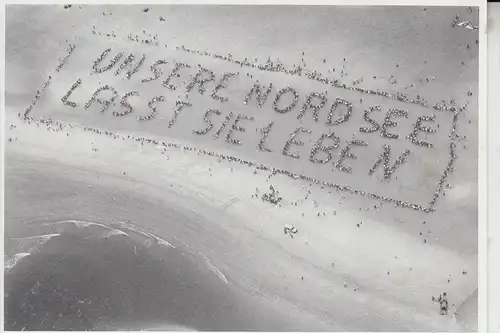 UNSERE NORDSEE
LASST SIE LEBEN